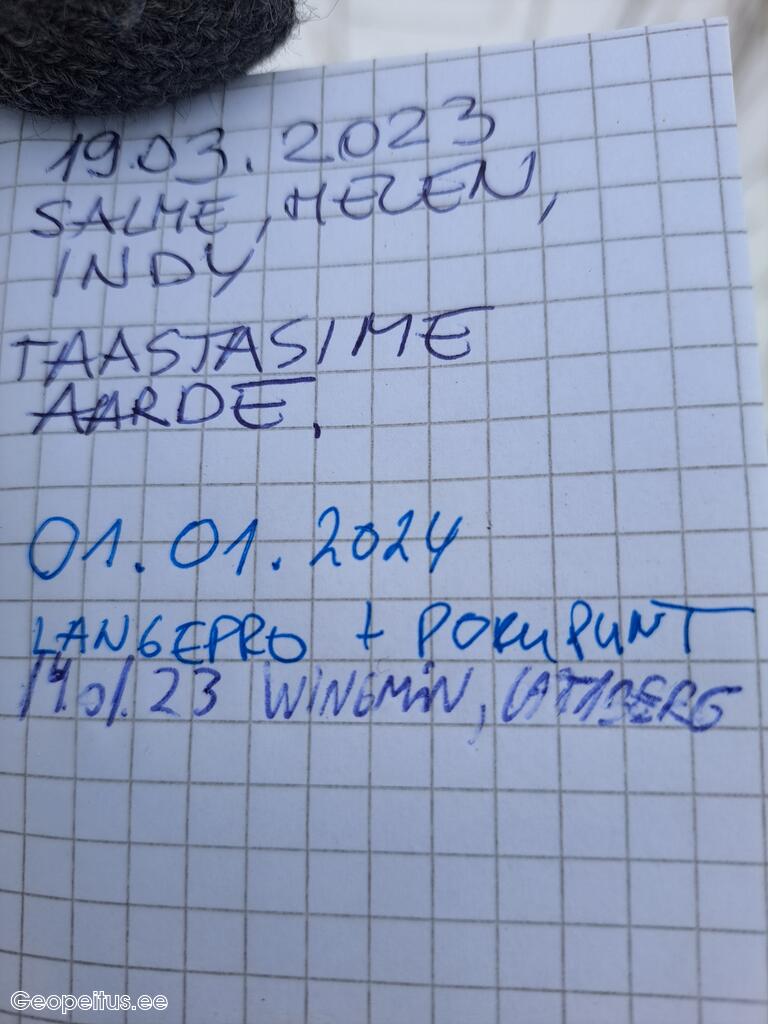 19.03.2023
SALME, HELEN,
INDY
TAASTASIME
AARDE.
01.01.2024
LANGEPRO + POKUPUNT
14.01.23 WINGMIN,
Geopeitus.ee